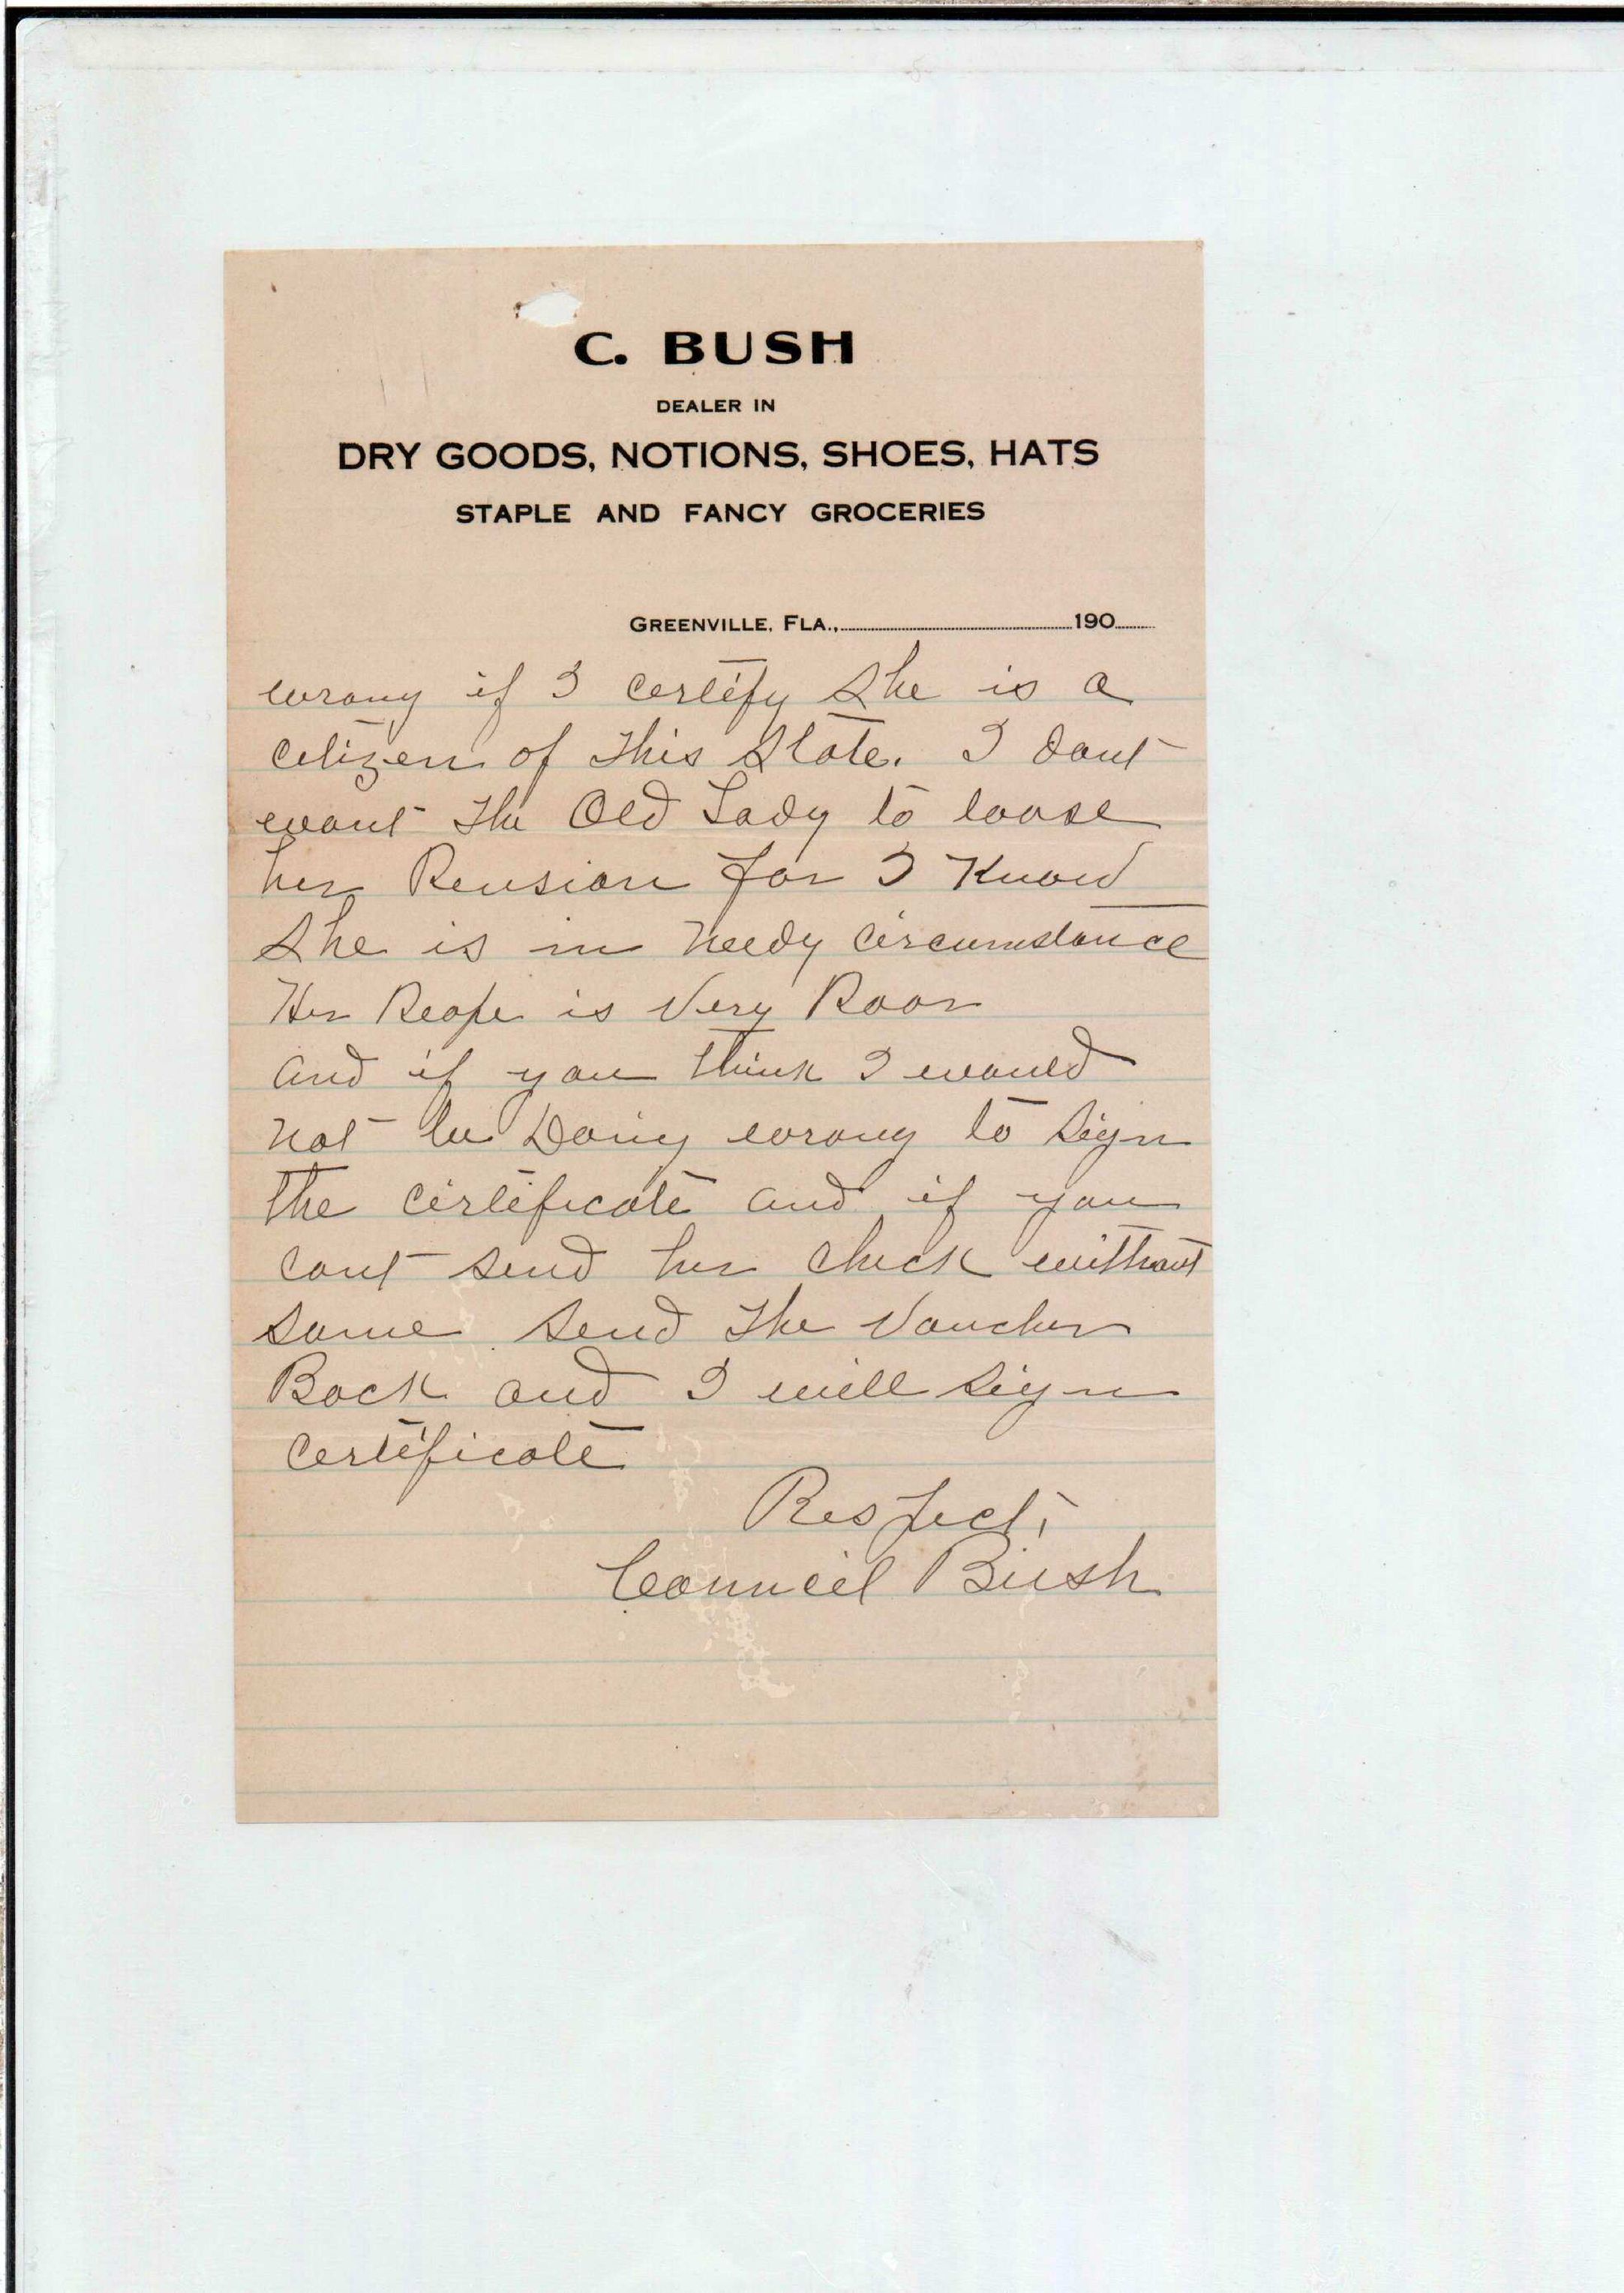 C. BUSH
DEALER IN
DRY GOODS, NOTIONS, SHOES, HATS
STAPLE AND FANCY GROCERIES
GREENVILLE, FLA., 190
wrong if I certify She is a
Citizen of this State. I dont
want the Old Lady to loose
her Pension for I Know
She is in needy Circumstance
Her Peope is Very Poor
and if you think I would
not be Doing wrong to Sign
the Certificate and if you
cant send her check without
same send the Voucher
Back and I will Sign
Certificate
Respect,
Council Bush